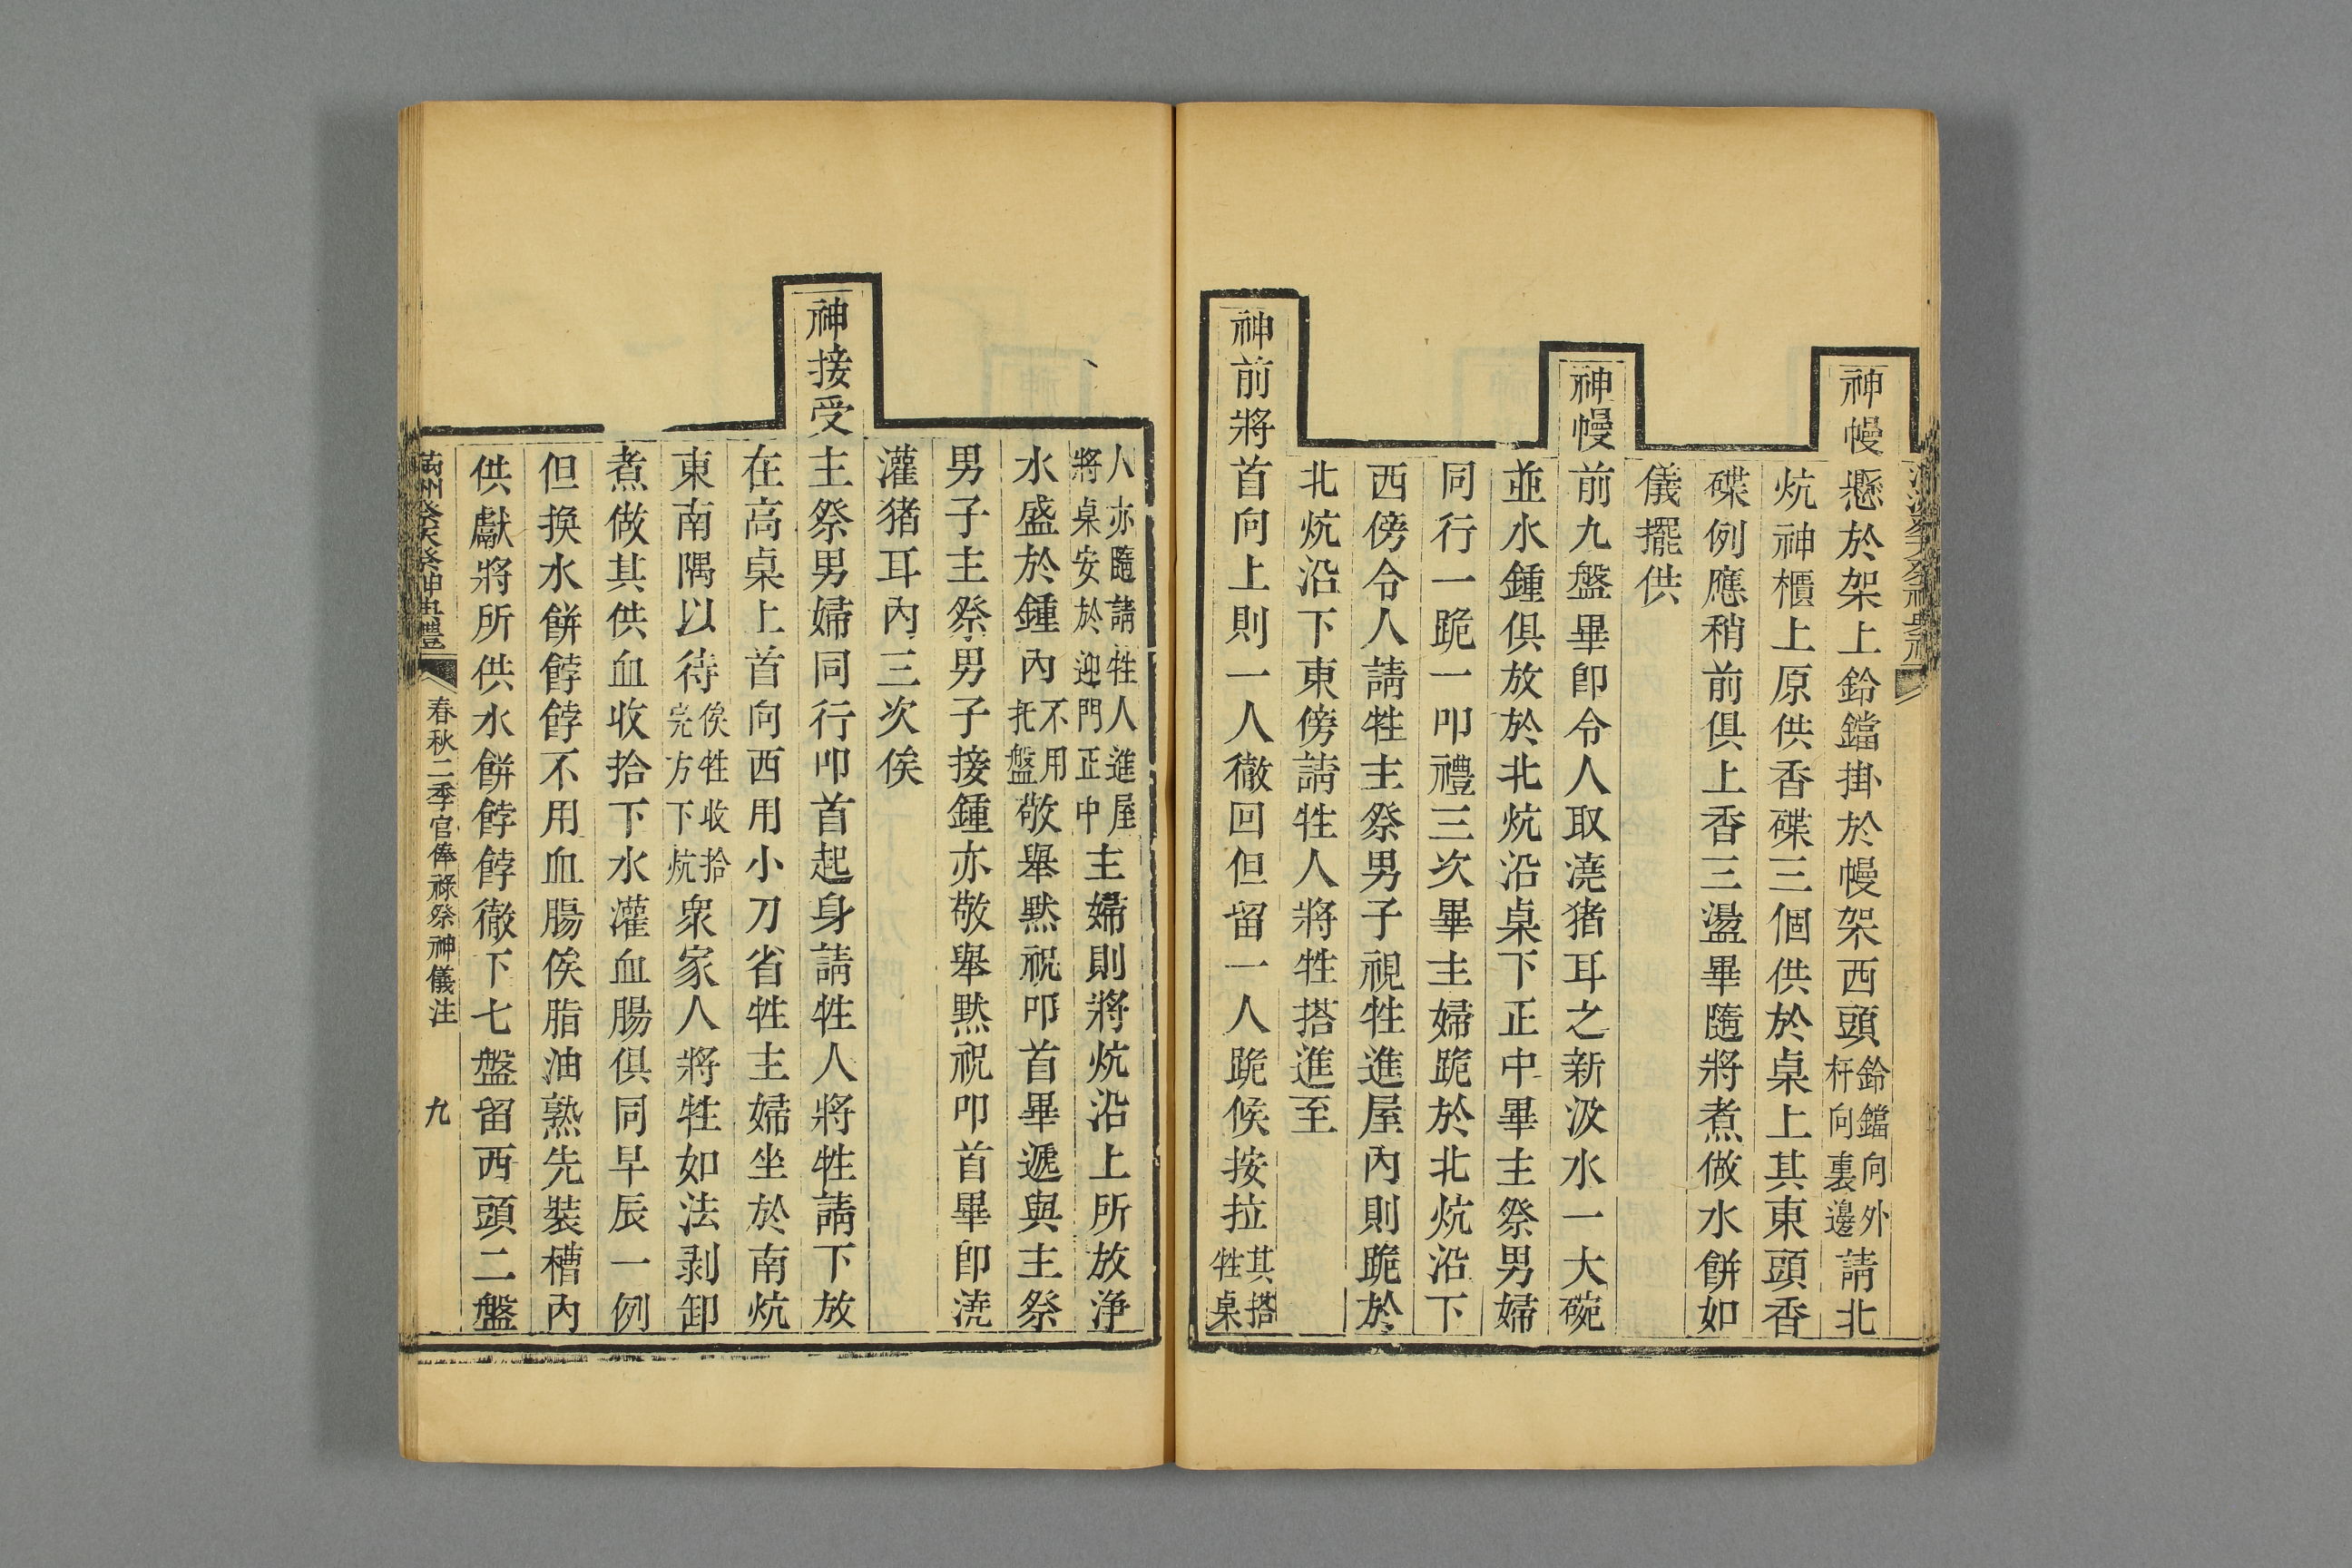 神幔懸於架上鈴鐺掛於幔架西頭鈴鐺向外杆向裏邊請北
炕神櫃上原供香碟三個供於桌上其東頭香
碟例應稍前俱上香三盪畢隨將煮做水餅如
儀擺供
神幔前九盤畢卽令人取澆猪耳之新汲水一大碗
並水鍾俱放於北炕沿桌下正中畢主祭男婦
同行一跪一叩禮三次畢主婦跪於北炕沿下
西傍令人請牲主祭男子視牲進屋內則跪於
北炕沿下東傍請牲人將牲搭進至
神前將首向上則一人徹回但留一人跪候按拉其搭牲桌
人亦隨請牲人進屋將桌安於迎門正中主婦則將炕沿上所放净
水盛於鍾內不用托盤敬舉默祝叩首畢遞與主祭
男子主祭男子接鍾亦敬舉默祝叩首畢卽澆
灌猪耳內三次俟
神接受主祭男婦同行叩首起身請牲人將牲請下放
在高桌上首向西用小刀省牲主婦坐於南炕
東南隅以待俟牲收拾完方下炕衆家人將牲如法剥卸
煮做其供血收拾下水灌血腸俱同早辰一例
但換水餅餑餑不用血腸俟脂油熟先裝槽內
供獻將所供水餅餑餑徹下七盤留西頭二盤
滿洲祭天祭神典禮
春秋二季官俸祿祭神儀注
九